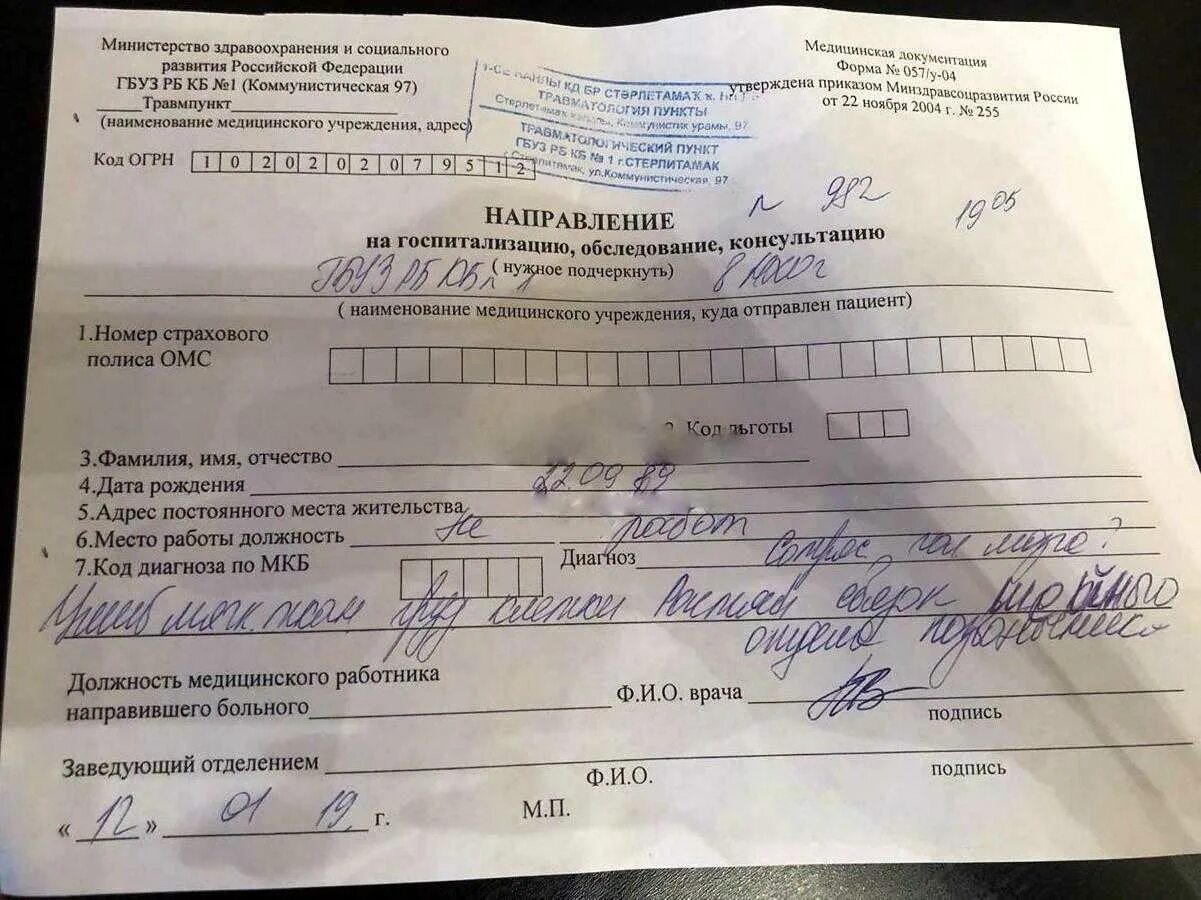 Министерство здравоохранения и социального
развития Российской Федерации
ГБУЗ РБ КБ №1 (Коммунистическая 97)
Травмпункт
(наименование медицинского учреждения, адрес)
Код ОГРН 1020202079512
Медицинская документация
Форма № 057/у-04
утверждена приказом Минздравсоцразвития России
от 22 ноября 2004 г. № 255
КД БР СТӘРЛЕТАМАҠ ҡ.
ТРАВМАТОЛОГИЯ ПУНКТЫ
Коммунистик урамы, 97
ТРАВМАТОЛОГИЧЕСКИЙ ПУНКТ
ГБУЗ РБ КБ № 1 г.СТЕРЛИТАМАК
ул.Коммунистическая, 97
982
19 05
НАПРАВЛЕНИЕ
на госпитализацию, обследование, консультацию
( нужное подчеркнуть)
ГБУЗ РБ КБ 1
( наименование медицинского учреждения, куда отправлен пациент)
1.Номер страхового
полиса ОМС
Код льготы
3.Фамилия, имя, отчество
4.Дата рождения 22 09 89
5.Адрес постоянного места жительства
6.Место работы должность не работ
7.Код диагноза по МКБ Диагноз Сотряс гол мозга?
Ушиб мягк. ткан груд клетки Растяж связок шейного
отдела позвоночника
Должность медицинского работника
направившего больного Ф.И.О. врача
подпись
Заведующий отделением
Ф.И.О. подпись
« 12 » 01 19 г. М.П.